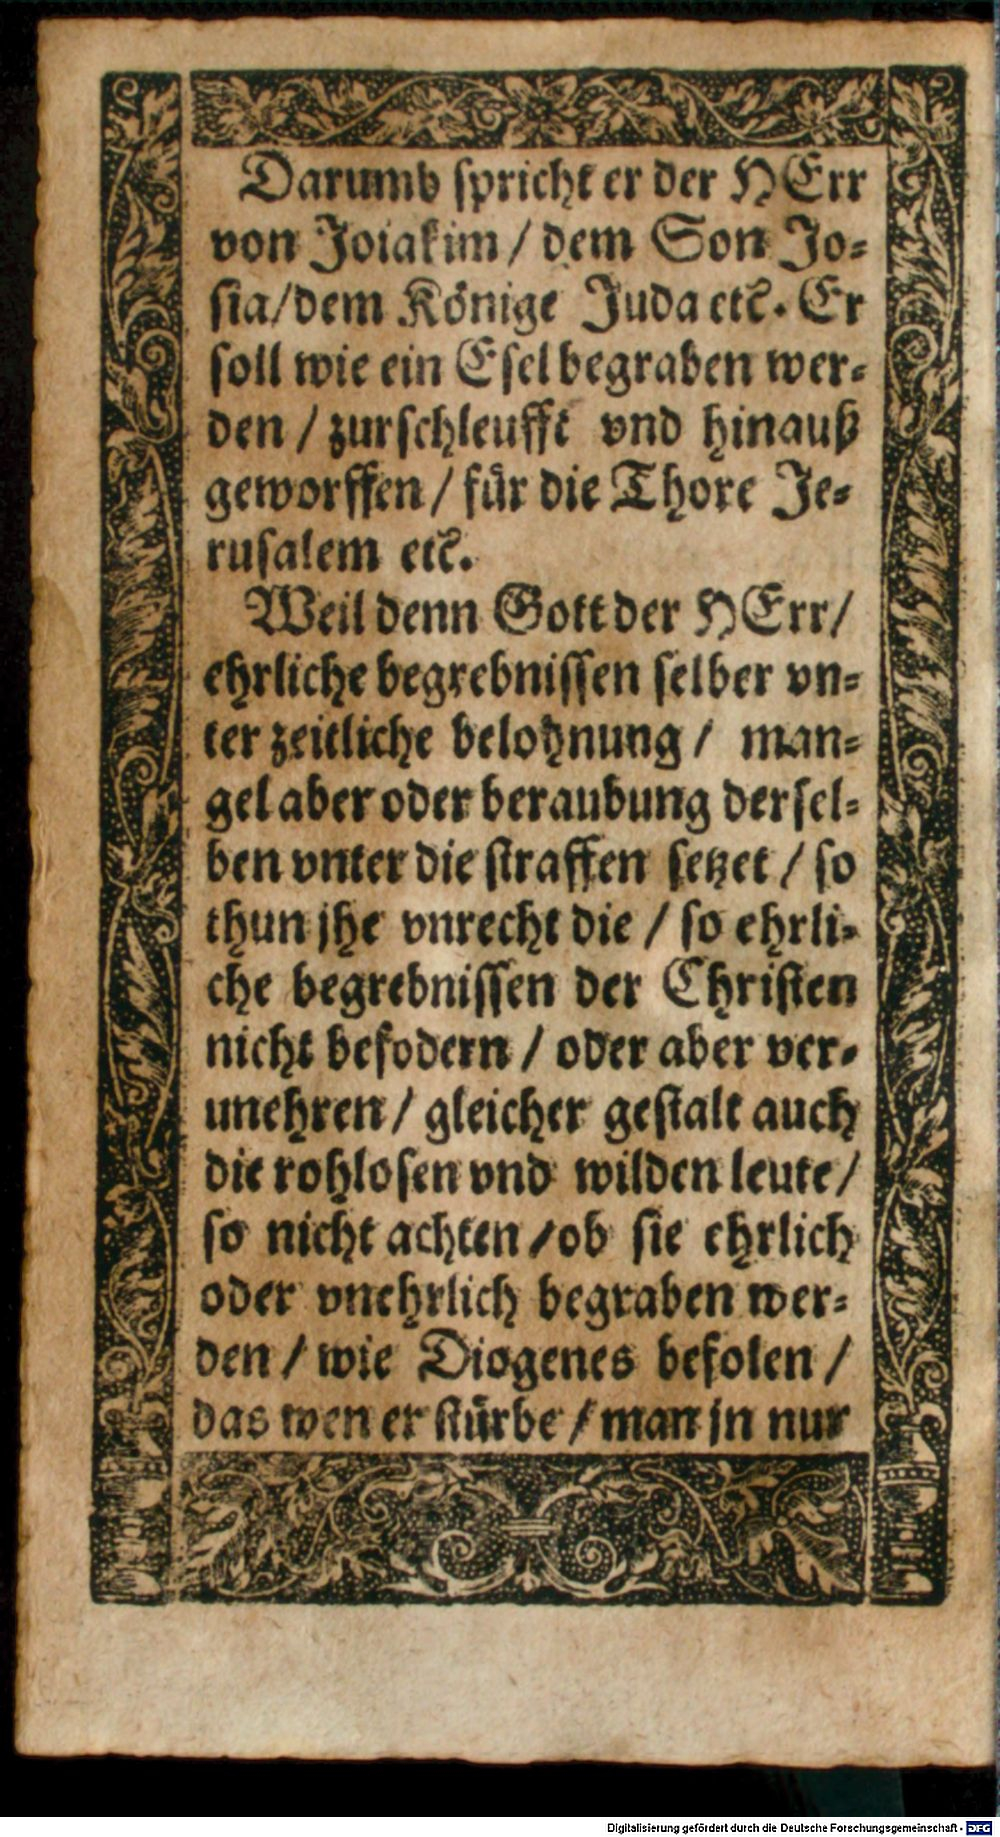 Darumb spricht er der HErr
von Joiakim / dem Son Jo-
sia/dem Könige Juda etc. Er
soll wie ein Esel begraben wer-
den / zurschleufft vnd hinauß
geworffen / für die Thore Je-
rusalem etc.
Weil denn Gott der HErr/
ehrliche begrebnissen selber vn-
ter zeitliche belohnung / man-
gel aber oder beraubung dersel-
ben vnter die straffen setzet / so
thun jhe vnrecht die / so ehrli-
che begrebnissen der Christen
nicht befodern / oder aber ver-
unehren / gleicher gestalt auch
die rohlosen vnd wilden leute /
so nicht achten / ob sie ehrlich
oder vnehrlich begraben wer-
den / wie Diogenes befolen /
das wen er stürbe / man jn nur
Digitalisierung gefördert durch die Deutsche Forschungsgemeinschaft - DFG